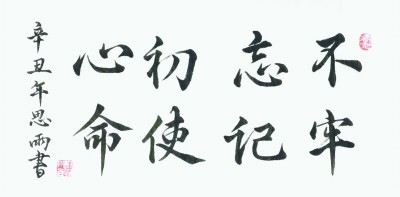 不忘初心
牢记使命
辛丑年思雨書